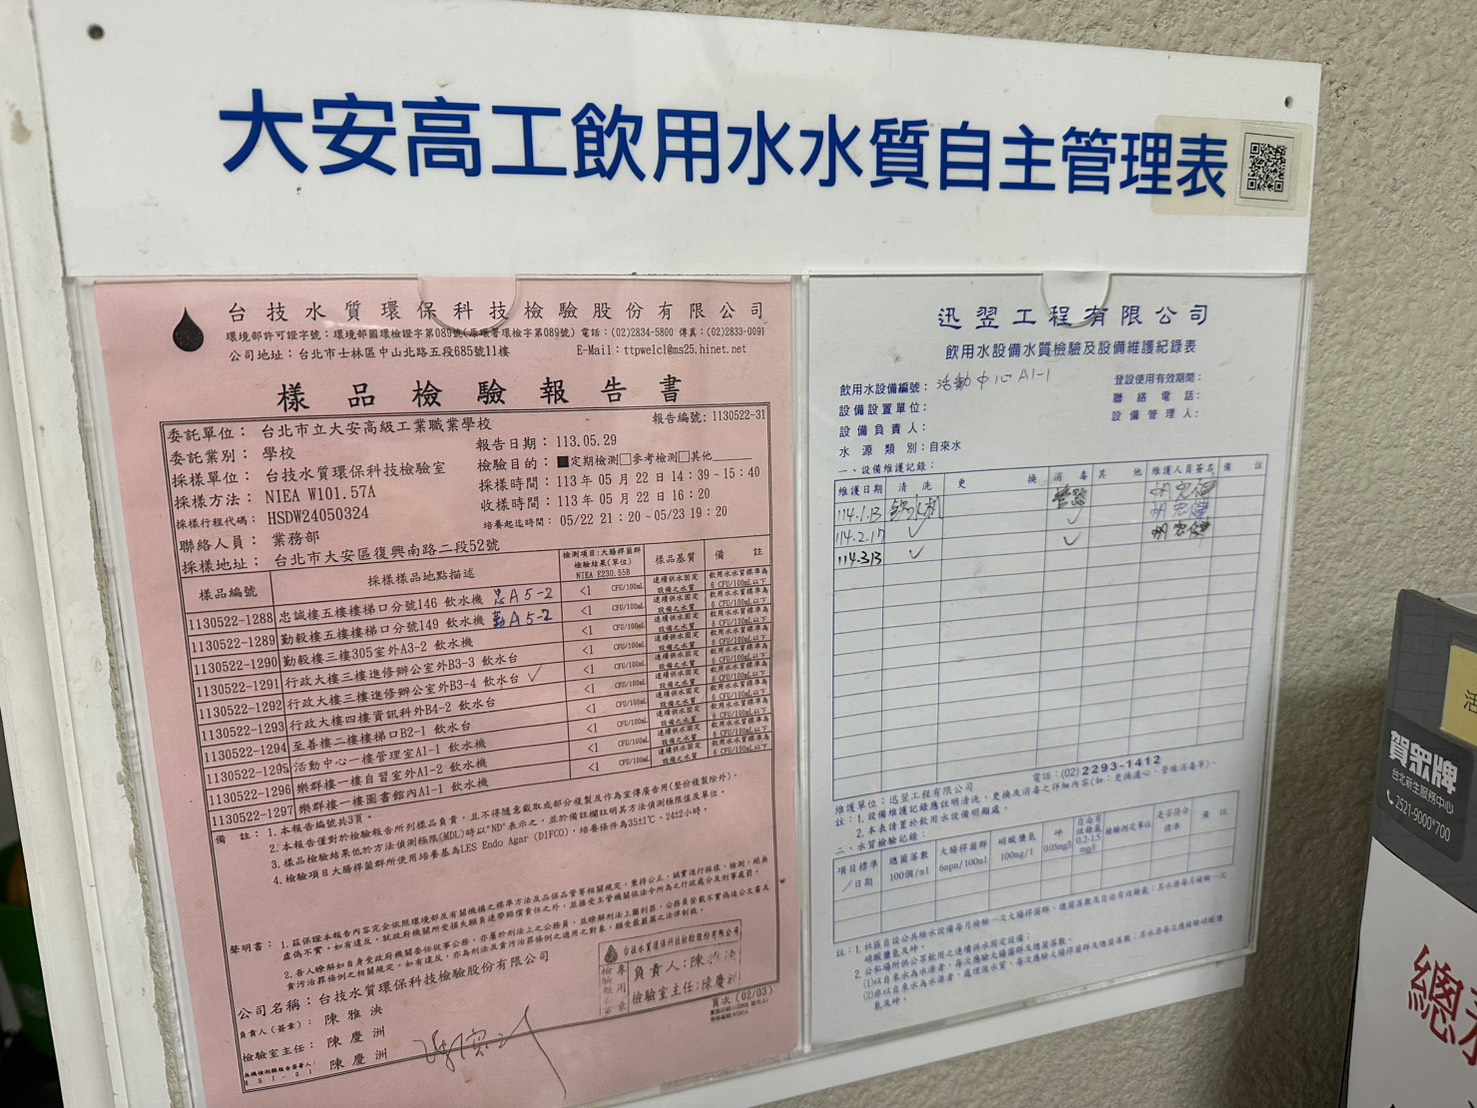 大安高工飲用水水質自主管理表
台技水質環保科技檢驗股份有限公司
環境部許可證字號：環境部國環檢證字第089號(原環署環檢字第089號) 電話：(02)2834-5800 傳真：(02)2833-0091
公司地址：台北市士林區中山北路五段685號11樓 E-Mail：ttpwelcl@ms25.hinet.net
樣品檢驗報告書
報告編號：1130522-31
委託單位：台北市立大安高級工業職業學校
委託業別：學校 報告日期：113.05.29
採樣單位：台技水質環保科技檢驗室 檢驗目的：■定期檢測□參考檢測□其他
採樣方法：NIEA W101.57A 採樣時間：113 年 05 月 22 日 14：39~15：40
採樣行程代碼：HSDW24050324 收樣時間：113 年 05 月 22 日 16：20
聯絡人員：業務部 培養起迄時間：05/22 21：20~05/23 19：20
採樣地址：台北市大安區復興南路二段52號
樣品編號 採樣樣品地點描述 檢測項目：大腸桿菌群 檢驗結果(單位) NIEA E230.55B 樣品基質 備註
1130522-1288 忠誠樓五樓樓梯口分號146 飲水機 忠A5-2 <1 CFU/100mL 連續供水固定設備之水質 飲用水水質標準為 6 CFU/100mL以下
1130522-1289 勤毅樓五樓樓梯口分號149 飲水機 勤A5-2 <1 CFU/100mL 連續供水固定設備之水質 飲用水水質標準為 6 CFU/100mL以下
1130522-1290 勤毅樓三樓305室外A3-2 飲水機 <1 CFU/100mL 連續供水固定設備之水質 飲用水水質標準為 6 CFU/100mL以下
1130522-1291 行政大樓三樓進修辦公室外B3-3 飲水台 <1 CFU/100mL 連續供水固定設備之水質 飲用水水質標準為 6 CFU/100mL以下
1130522-1292 行政大樓三樓進修辦公室外B3-4 飲水台 ✓ <1 CFU/100mL 連續供水固定設備之水質 飲用水水質標準為 6 CFU/100mL以下
1130522-1293 行政大樓四樓資訊科外B4-2 飲水台 <1 CFU/100mL 連續供水固定設備之水質 飲用水水質標準為 6 CFU/100mL以下
1130522-1294 至善樓二樓樓梯口B2-1 飲水台 <1 CFU/100mL 連續供水固定設備之水質 飲用水水質標準為 6 CFU/100mL以下
1130522-1295 活動中心一樓管理室A1-1 飲水機 <1 CFU/100mL 連續供水固定設備之水質 飲用水水質標準為 6 CFU/100mL以下
1130522-1296 樂群樓一樓自習室外A1-2 飲水機 <1 CFU/100mL 連續供水固定設備之水質 飲用水水質標準為 6 CFU/100mL以下
1130522-1297 樂群樓一樓圖書館內A1-1 飲水機 <1 CFU/100mL 連續供水固定設備之水質 飲用水水質標準為 6 CFU/100mL以下
備註：1.本報告編號共3頁。
2.本報告僅對於檢驗報告所列樣品負責，且不得隨意截取或部分複製及作為宣傳廣告用(整份複製除外)。
3.樣品檢驗結果低於方法偵測極限(MDL)時以"ND"表示之，並於備註欄註明其方法偵測極限值及單位。
4.檢驗項目大腸桿菌群所使用培養基為LES Endo Agar (DIFCO)，培養條件為35±1℃、24±2小時。
聲明書：1.茲保證本報告內容完全依照環境部及有關機構之標準方法及品保品管等相關規定，秉持公正、誠實進行採樣、檢測，絕無
虛偽不實，如有違反，就政府機關所受損失願負連帶賠償責任之外，並接受主管機關依法令所為之行政處分及刑事處罰。
2.吾人瞭解如自身受政府機關委任從事公務，亦屬於刑法上之公務員，並瞭解刑法上圖利罪、公務員登載不實偽造公文書及
貪污治罪條例之相關規定，如有違反，亦為刑法及貪污治罪條例之適用之對象，願受最嚴厲之法律制裁。
公司名稱：台技水質環保科技檢驗股份有限公司
負責人(簽章)：陳雅泱
檢驗室主任：陳慶洲
陳慶洲
台技水質環保科技檢驗股份有限公司
檢驗報告專用章
負責人：陳雅泱
檢驗室主任：陳慶洲
頁次 (02/03)
迅翌工程有限公司
飲用水設備水質檢驗及設備維護紀錄表
飲用水設備編號：活動中心A1-1 登設使用有效期間：
設備設置單位： 聯絡電話：
設備負責人： 設備管理人：
水源類別：自來水
一、設備維護記錄：
維護日期 清洗 更換 消毒 其他 維護人員簽名 備註
114.1.13
114.2.17 ✓ ✓
114.3.13 ✓ ✓
電話：(02)2293-1412
維護單位：迅翌工程有限公司
註：1.設備維護記錄應註明清洗、更換及消毒之詳細內容(如：更換濾心、管維消毒等)。
2.本表請置於飲用水設備明顯處。
二、水質檢驗記錄：
項目標準／日期 總菌落數 100個/ml 大腸桿菌群 6mpn/100ml 硝酸鹽氮 100mg/l 砷 0.05mg/l 自由有效餘氯 0.2-1.5 mg/l 檢驗測定單位 是否符合標準 備註
註：1.社區自設公共給水設備每月檢驗一次大腸桿菌群、總菌落數及自由有效餘氯；其水源每月檢驗一次
硝酸鹽氮及砷。
2.公私場所供公眾飲用之連續供水固定設備：
(1)以自來水為水源者，每次應驗大腸菌群及總菌落數。
賀眾牌
台北新生服務中心
2521-9000*700
活
總